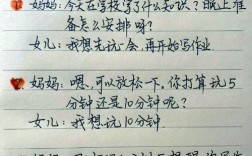 妈妈:今天在学校学了什么知识?晚上准
备怎么安排呀?
女儿:我想先玩一会,再开始写作业
妈妈:嗯,可以放松一下。你打算玩5
分钟还是10分钟呢?
女儿:我想玩10分钟.